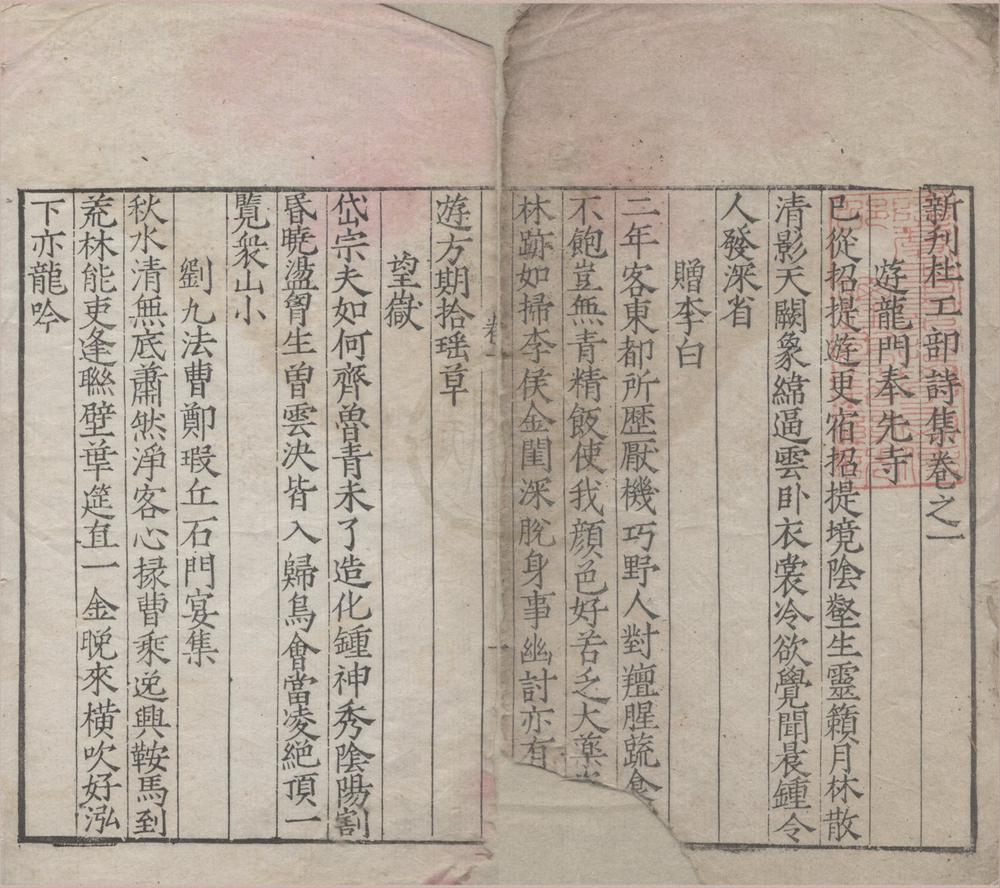 新刋杜工部詩集卷之一
遊龍門奉先寺
已從招提遊更宿招提境陰壑生靈籟月林散
清影天闕象緯逼雲卧衣裳冷欲覺聞晨鍾令
人發深省
贈李白
二年客東都所歷厭機巧野人對羶腥蔬食
不飽豈無青精飯使我顔色好苦乏大藥
林跡如掃李侯金閨深脫身事幽討亦有
卷一
一
遊方期拾瑶草
望嶽
岱宗夫如何齊魯青未了造化鍾神秀陰陽割
昏曉盪胷生曽雲決眥入歸鳥會當凌絶頂一
覽衆山小
劉九法曹鄭瑕丘石門宴集
秋水清無底蕭然淨客心掾曹乘逸興鞍馬到
荒林能吏逢聯璧華筵直一金晚來橫吹好泓
下亦龍吟